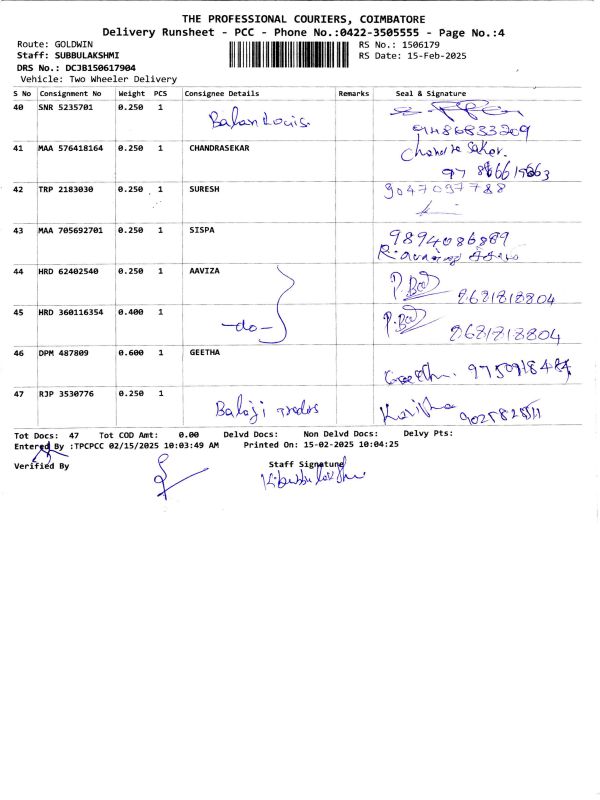 THE PROFESSIONAL COURIERS, COIMBATORE
Delivery Runsheet - PCC - Phone No.:0422-3505555 - Page No.:4
Route: GOLDWIN RS No.: 1506179
Staff: SUBBULAKSHMI RS Date: 15-Feb-2025
DRS No.: DCJB150617904
Vehicle: Two Wheeler Delivery
S No Consignment No Weight PCS Consignee Details Remarks Seal & Signature
40 SNR 5235701 0.250 1 Balan Louis.
9486833209
41 MAA 576418164 0.250 1 CHANDRASEKAR Chandra Sekar.
42 TRP 2183030 0.250 1 SURESH 9047097788
43 MAA 705692701 0.250 1 SISPA 9894086889
44 HRD 62402540 0.250 1 AAVIZA
8681818804
45 HRD 360116354 0.400 1 -do-
8681818804
46 DPM 487809 0.600 1 GEETHA
Geetha. 9750918484
47 RJP 3530776 0.250 1 Balaji
Tot Docs: 47 Tot COD Amt: 0.00 Delvd Docs: Non Delvd Docs: Delvy Pts:
Entered By :TPCPCC 02/15/2025 10:03:49 AM Printed On: 15-02-2025 10:04:25
Verified By Staff Signature